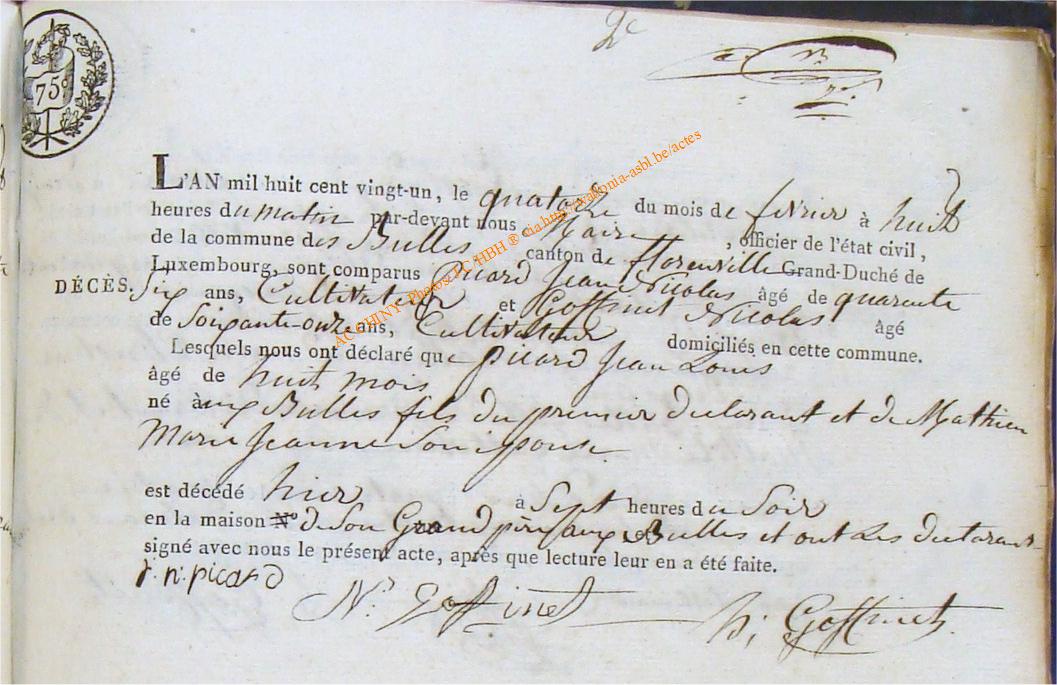 2e
75c
L'AN mil huit cent vingt-un, le quatorze du mois de fevrier à huit
heures du matin par-devant nous Maire, officier de l'état civil,
de la commune des Bulles canton de florenville Grand-Duché de
Luxembourg, sont comparus Picard Jean Nicolas âgé de quarante
DÉCÈS.
Six ans, Cultivateur et Goffinet Nicolas âgé
de Soixante-onze ans, Cultivateur domiciliés en cette commune.
Lesquels nous ont déclaré que picard Jean Louis
âgé de huit mois
né aux Bulles fils du premier declarant et de Mathieu
Marie Jeanne Son epouse
est décédé hier à Sept heures du Soir
en la maison N° de Son Grand pere aux Bulles et ont Les declarants
signé avec nous le présent acte, après que lecture leur en a été faite.
j. n. picard
N. Goffinet
h; Goffinet
ACCHINY-Photos TC/HBH ® via http://wallonia-asbl.be/actes